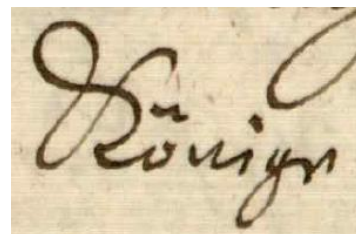 Könige